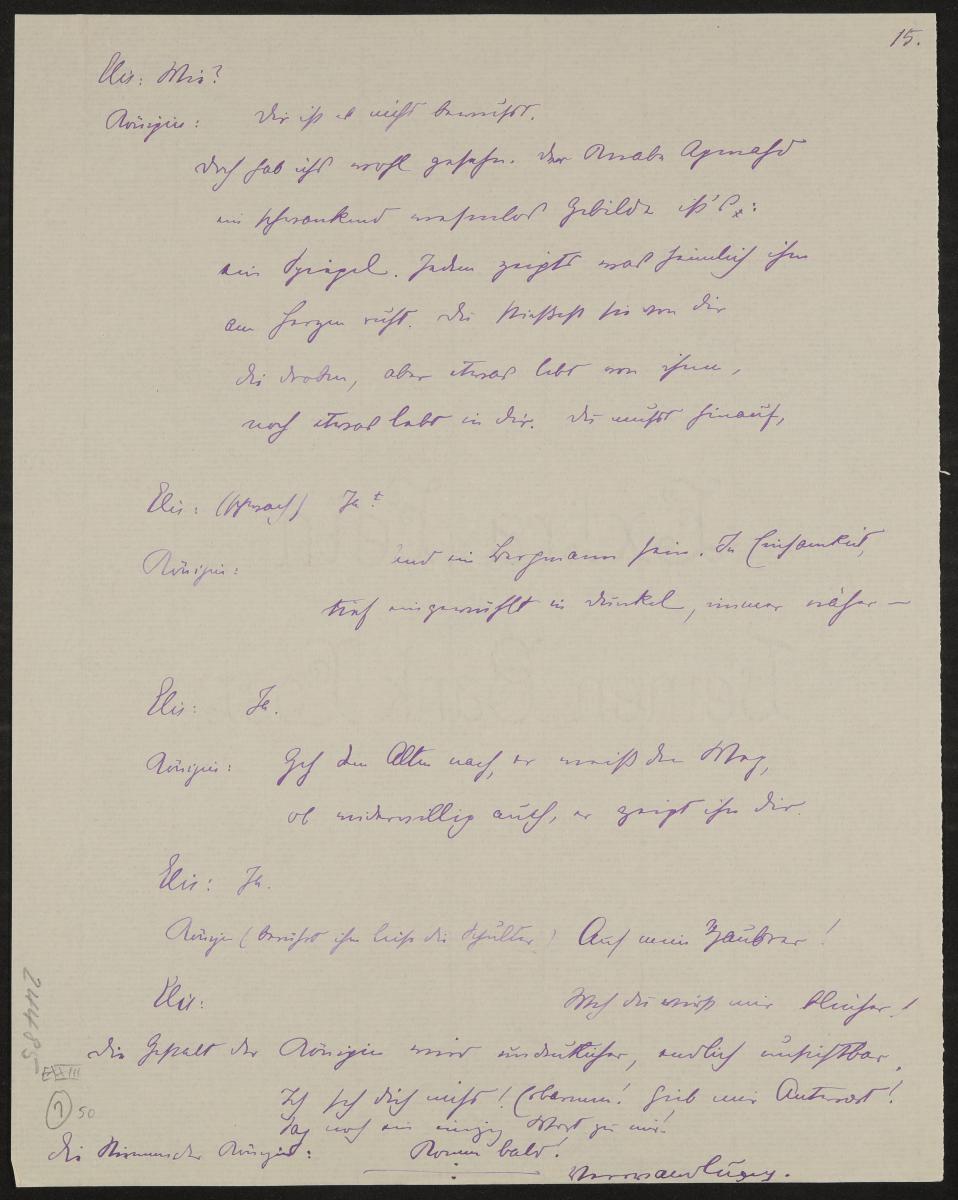 15.
Elis: Wie?
Königin: Dir ist es nicht bewußt.
Doch hab ichs wohl gesehn. Der Knabe Agmahd
ein schwankend wesenlos Gebilde ist's:
ein Spiegel. Jedem zeigts was heimlich ihm
am Herzen ruht. Du stießest sie von dir
die droben, aber etwas lebt von ihnen,
noch etwas lebt in dir. Du mußt hinauf,
Elis: (schwach) Ja!
Königin: und ein Bergmann sein. In Einsamkeit,
tief eingewühlt in Dunkel, immer näher —
Elis: Ja.
Königin: Geh dem Alten nach, er weiß den Weg,
ob widerwillig auch, er zeigt ihn dir.
Elis: Ja.
Königin (berührt ihm leise die Schulter) Auf mein Zaubrer!
Elis: Weh du wirst mir bleicher!
Die Gestalt der Königin wird undeutlicher, endlich unsichtbar.
Ich seh dich nicht! Erbarmen! Gieb mir Antwort!
Sag noch ein einzig Wort zu mir!
die Stimme der Königin: Komm bald!
Verwandlung.
24485
EIII
7
50